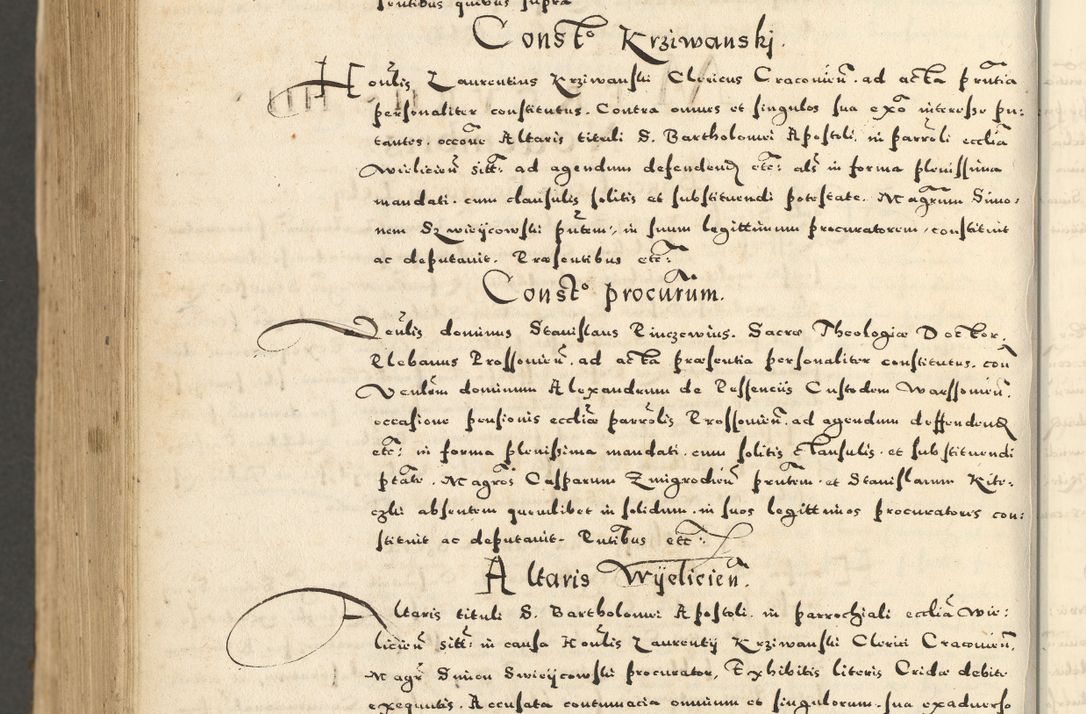 sentibus quibus supra
Consto Krziwanski.
Honlis Laurentius Krziwanski Clericus Cracovien. ad acta prntia
personaliter constitutus. Contra omnes et singulos sua exo interesse pu-
tantes. occone Altaris tituli S. Bartholomei Apostoli. in parroli ecclia
Wielicien sitt: ad agendum defendend etc: als in forma plenissima
mandati. cum clausulis solitis et substituendi potestate. Magrum Simo-
nem Dzwieijcowski pntem, in suum legittimum procuratorem, constituit
ac deputavit. Praesentibus etc:
Consto procurum.
Venlis dominus Stanislaus Pinczewius. Sacrae Theologiae Docktor.
Plebanus Prossovien. ad acta praesentia personaliter constitutus. con
Venlem dominum Alexandrum de Pessenciis Custodem Warssovien.
occasione pensionis eccliae parrolis Prossovien. ad agendum deffendend
etc: in forma plenissima mandati. cum solitis Clausulis. et substituendi
ptate. Magros Casparum Zmigrodien prntem. et Stanislaum Kite-
czki absentem quemlibet in solidum. in suos legittimos procuratores con:
stituit ac deputavit. Pntibus etc:
Altaris Wyelicien.
Altaris tituli S. Bartholomei Apostoli. in parrochiali ecclia Wie:
licien sitt: in causa Honlis Laurentij Krziwanski Clerici Cracovien,
Magr Simon Dzwieijcowski procurator, Exhibitis literis Cridae debite
exequutis. Accusata contumacia omnium et singulorum. sua exadverso